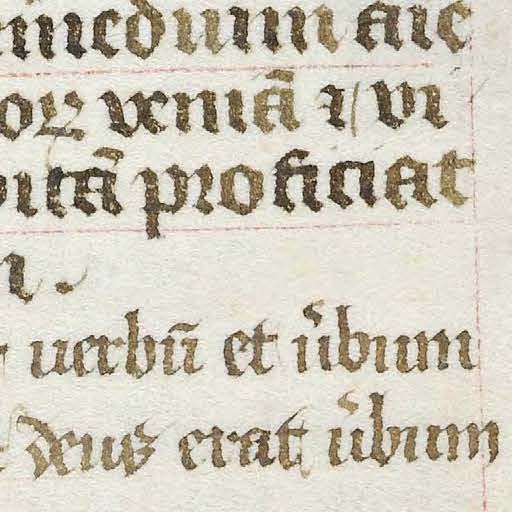 remedium aīe
oꝝ veniā ⁊ vi
vitā proficiat
n.
uerbū et u̾bum
deus erat u̾bum